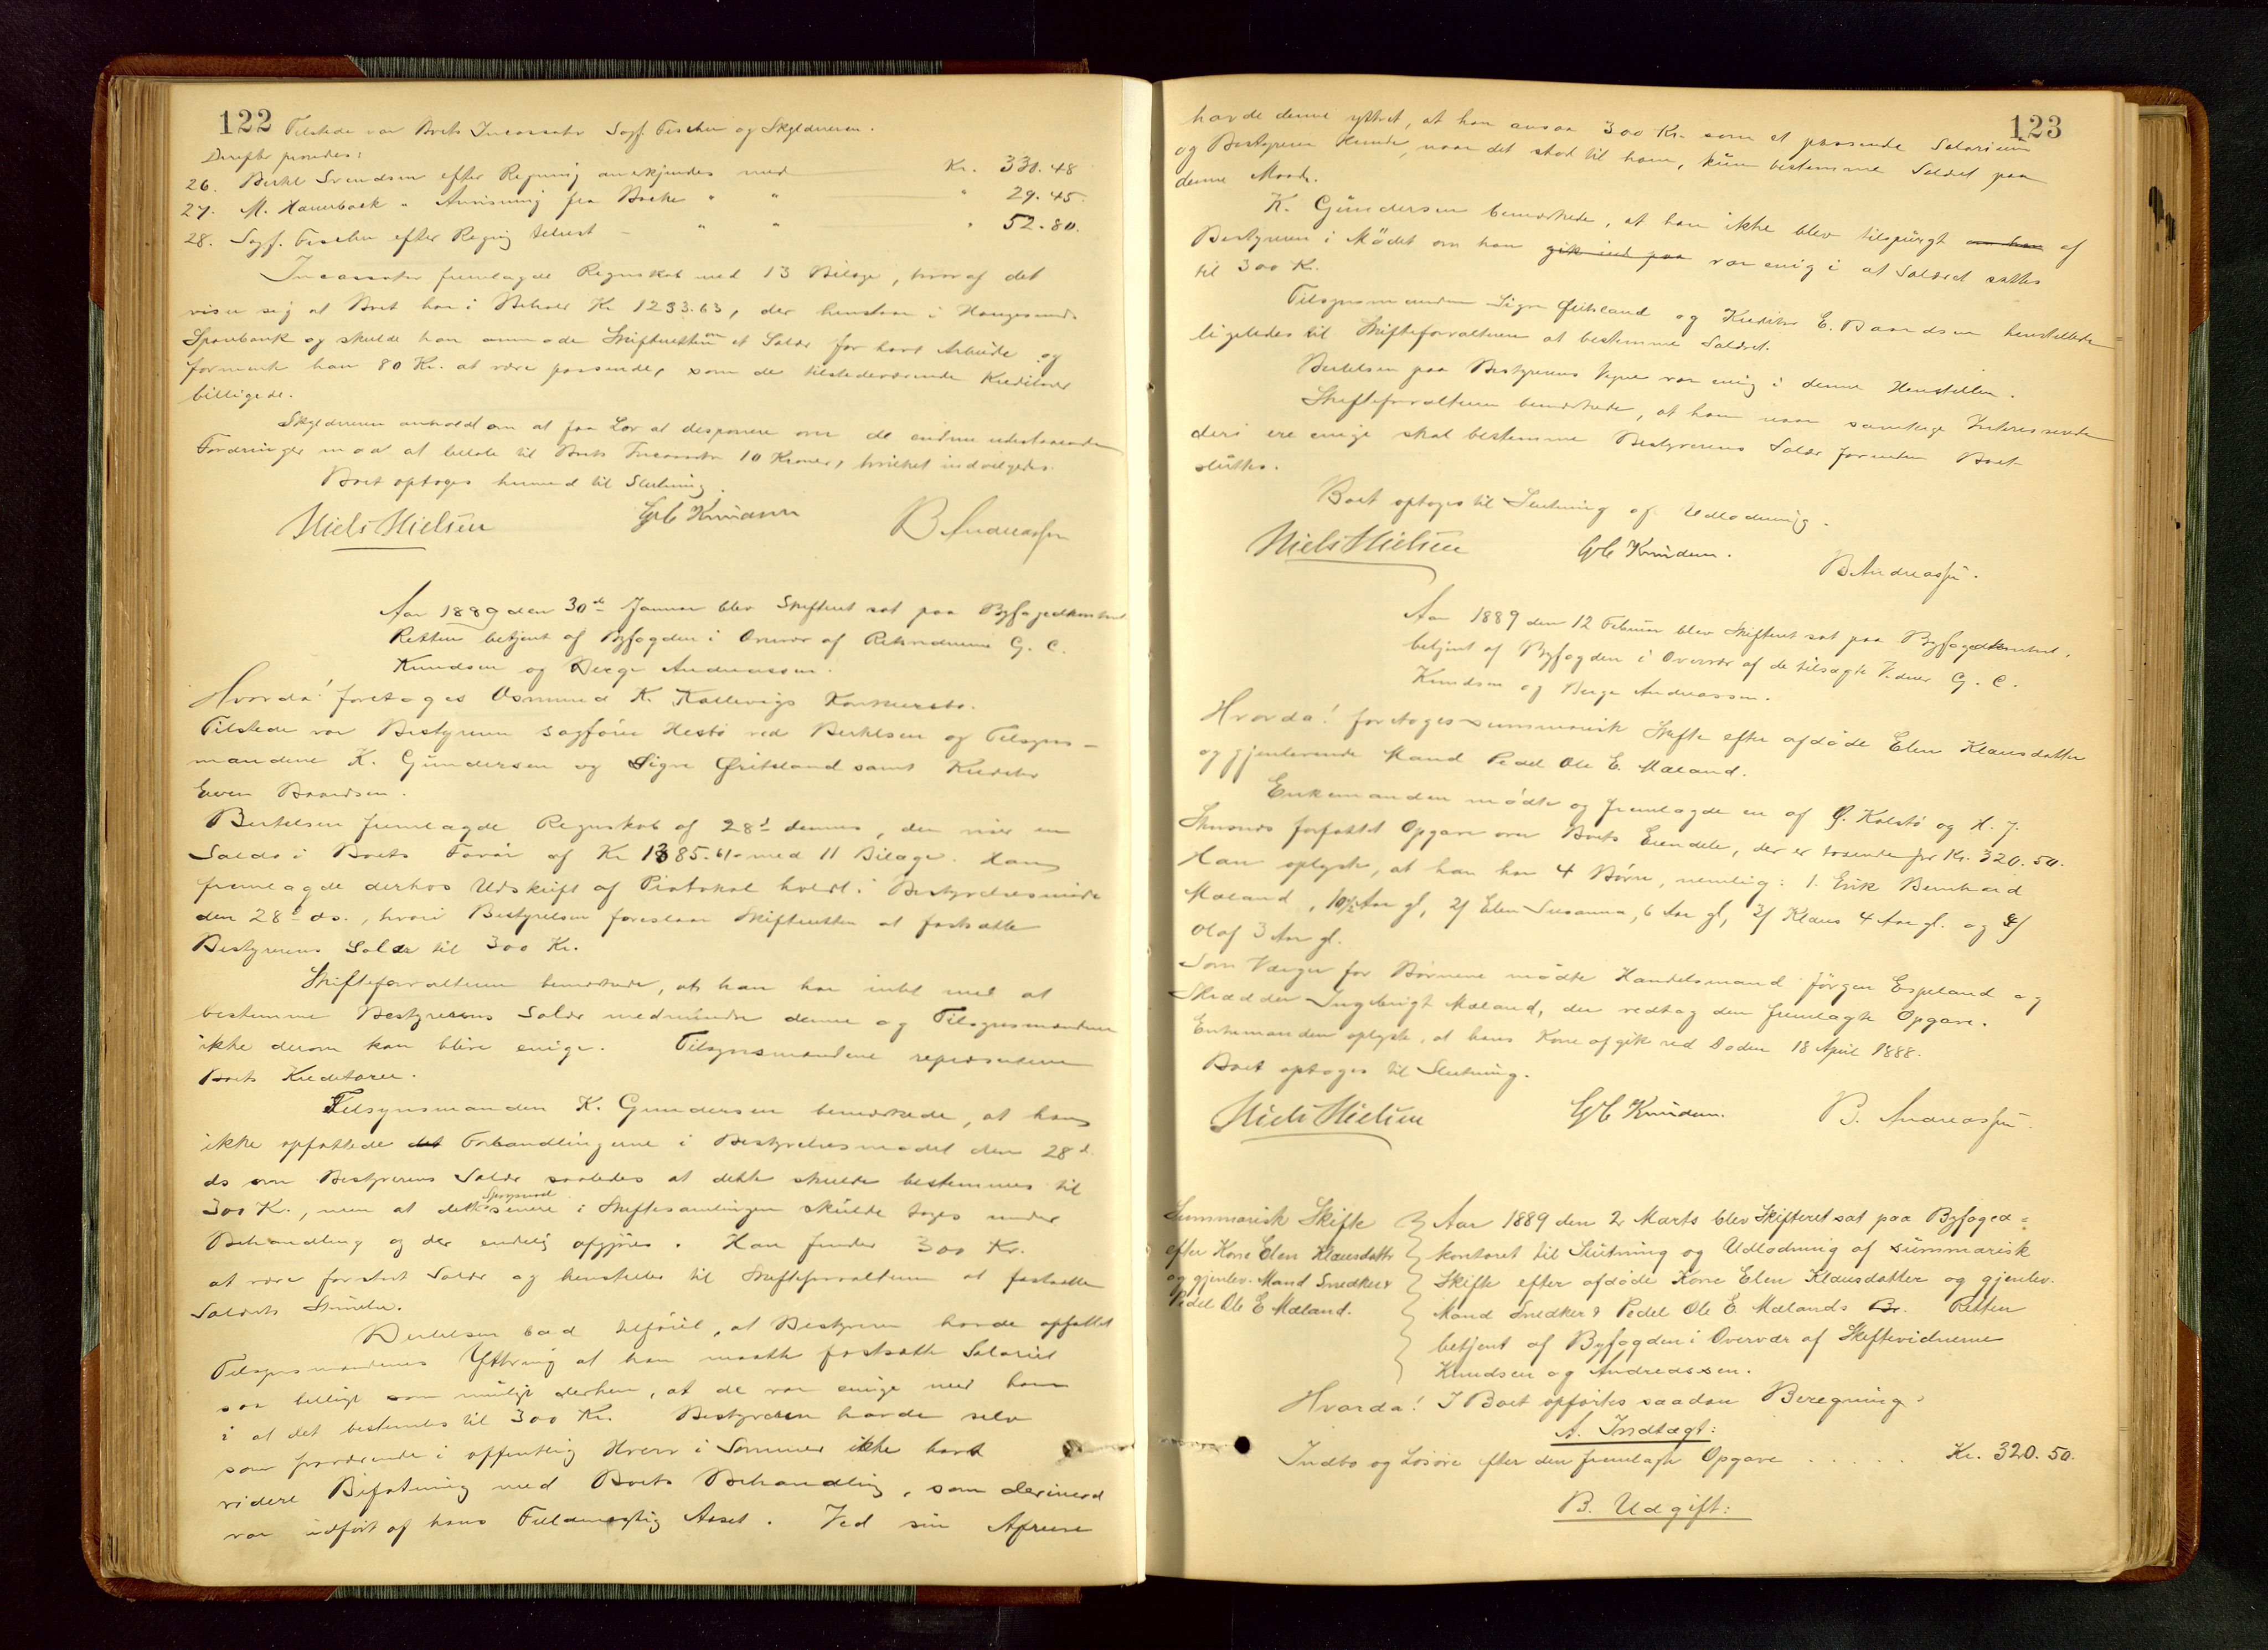 122 Tilstede var Boets Incassator Sagf. Fischer og Skyldneren.
Derefter prøvedes:
26. Bertel Svendsen efter Regning anerkjendes med Kr. 330.48
27. M. Hauerback " Anvisning fra Bakke " " " 29.45
28. Sagf. Fischer efter Regning " " " 52.80.
Incassator fremlagde Regnskab med 13 Bilage, hvoraf det
viser sig at Boet har i Behold Kr 1233.63, der henstaar i Haugesunds
Sparebank og skulde han anmode Skifteretten om et Salær for havt Arbeide og
formente han 80 Kr. at være passende, som de tilstedeværende Kreditorer
billigede.
Skyldneren anholdt om at faa Lov at disponere over de endnu udestaaende
Fordringer mod at betale til Boets Incassator 10 Kroner, hvilket indvilgedes.
Boet optoges hermed til Slutning.
Niels Nielsen GC Knudsen B Andreassen
Aar 1889 den 30te Januar blev Skifteret sat paa Byfogedkontoret
Retten betjent af Byfogden i Overvær af Retsvidnerne G. C.
Knudsen og Berge Andreassen.
Hvorda! foretoges Osmund K. Kallevigs Konkursbo.
Tilstede var Bestyreren Sagfører Hestø ved Bertelsen og Tilsyns-
mandene K. Gundersen og Sigve Øritsland samt Kreditor
Even Baardsen.
Bertelsen fremlagde Regnskab af 28de dennes, der viser en
Saldo i Boets Favør af Kr 1385.61 med 11 Bilage. Han
fremlagde derhos Udskrift af Protokol holdt i Bestyrelsesmøde
den 28de ds., hvori Bestyrelsen foreslaar Skifteretten at fastsætte
Bestyrerens Salær til 300 Kr.
Skifteforvalteren bemærkede, at han har intet med at
bestemme Bestyrerens Salær medmindre denne og Tilsynsmændene
ikke derom kan blive enige. Tilsynsmændene repræsenterer
Boets Kreditorer.
Tilsynsmanden K. Gundersen bemærkede, at han
ikke opfattede det Forhandlingerne i Bestyrelsesmødet den 28de
ds om Bestyrerens Salær saaledes at dette skulde bestemmes til
300 Kr., men at dette Spørgsmaal senere i Skiftesamlingen skulde tages under
Behandling og der endelig afgjøres. Han finder 300 Kr.
at være for stort Salær og henstiller til Skifteforvalteren at fastsætte
Salærets Størrelse.
Bertelsen bad tilføiet, at Bestyreren havde opfattet
Tilsynsmændenes Yttring at han maatte fastsætte Salæret
saa billigt som muligt derhen, at de var enige med ham
i at det bestemtes til 300 Kr. Bestyreren havde selv
som fraværende i offentlig Hverv i Sommer ikke havt
videre Befatning med Boets Behandling, som derimod
var udført af hans Fuldmægtig Aaset. Ved sin Afreise
123
havde denne yttret, at han ansaa 300 Kr. som et passende Salarium
og Bestyreren kunde, naar det stod til ham, kun bestemme Salæret paa
denne Maade.
K. Gundersen bemærkede, at han ikke blev tilspurgt om han af
Bestyreren i Mødet om han gik ind paa var enig i at Salæret sattes
til 300 Kr.
Tilsynsmanden Sigve Øritsland og Kreditor E. Baardsen henstillede
ligeledes til Skifteforvalteren at bestemme Salæret.
Bertelsen paa Bestyrerens Vegne var enig i denne Henstillen.
Skifteforvalteren bemærkede, at han naar samtlige Interesserede
deri ere enige skal bestemme Bestyrerens Salær forinden Boet
sluttes.
Boet optoges til Slutning og Udlodning.
Niels Nielsen GC Knudsen. B Andreassen.
Aar 1889 den 12 Februar blev Skifteret sat paa Byfogedkontoret,
betjent af Byfogden i Overvær af de tilsagte Vidner G. C.
Knudsen og Berge Andreassen.
Hvorda! foretoges summarisk Skifte efter afdøde Elen Klausdatter
og gjenlevende Mand Pedel Ole E. Mæland.
Enkemanden mødte og fremlagde en af Ø. Kolstø og H. J.
forfattet Opgave over Boets Eiendele, der er lydende for Kr. 320.50.
Han oplyste, at han har 4 Børn, nemlig: 1. Erik Bernhard
Mæland, 10½ Aar gl, 2/ Elen Susanna, 6 Aar gl, 3/ Klaus 4 Aar gl. og 4/
Olaf 3 Aar gl.
Som Værger for Børnene mødte Handelsmand Jørgen Espeland og
Skrædder Ingebrigt Mæland, der vedtog den fremlagte Opgave.
Enkemanden oplyste, at hans Kone afgik ved Døden 18 April 1888.
Boet optoges til Slutning.
Niels Nielsen GC Knudsen. B. Andreassen.
Summarisk Skifte
efter Kone Elen Klausdatter
og gjenlev. Mand Snedker &
Pedel Ole E Mæland.
Aar 1889 den 2 Marts blev Skifteret sat paa Byfoged=
kontoret til Slutning og Udlodning af summarisk
Skifte efter afdøde Kone Elen Klausdatter og gjenlev.
Mand Snedker & Pedel Ole E. Mælands Bo. Retten
betjent af Byfogden i Overvær af Skiftevidnerne
Knudsen og Andreassen.
Hvorda! I Boet opførtes saadan Beregning:
A. Indtægt:
Indbo og Løsøre efter den fremlagte Opgave ..... Kr. 320.50.
B. Udgift: